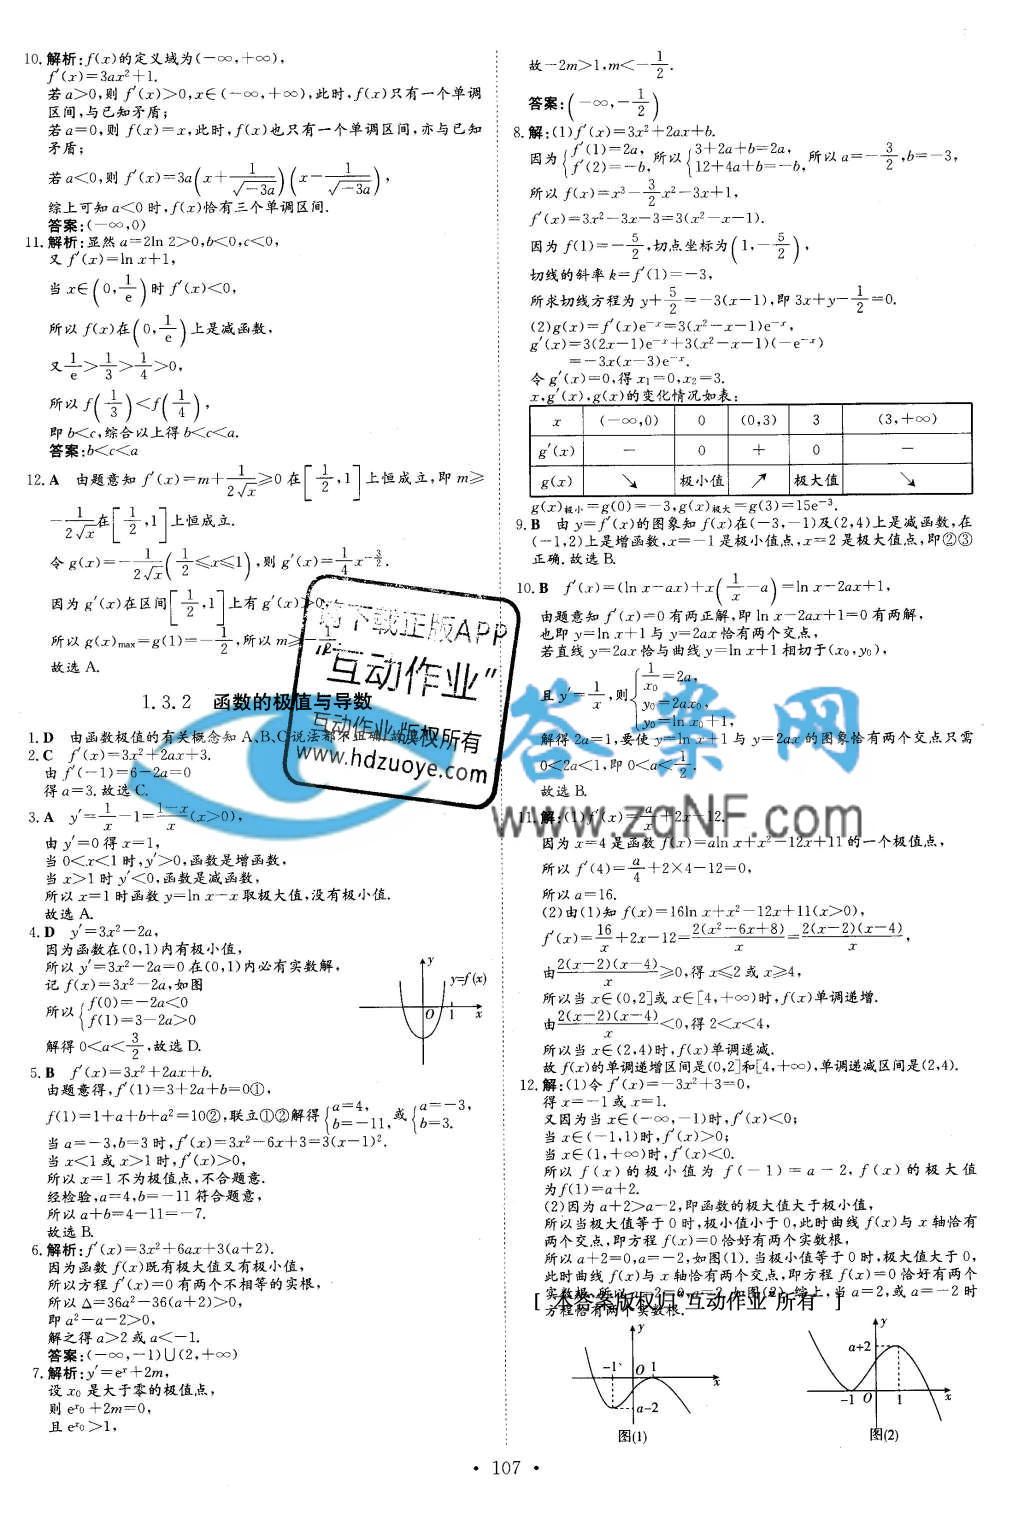 10. 解析:f(x)的定义域为(-∞,+∞),
f′(x)=3ax²+1.
若a>0,则f′(x)>0,x∈(-∞,+∞),此时,f(x)只有一个单调
区间,与已知矛盾;
若a=0,则f(x)=x,此时,f(x)也只有一个单调区间,亦与已知
矛盾;
若a<0,则f′(x)=3a(x+1/√(-3a))(x-1/√(-3a)),
综上可知a<0时,f(x)恰有三个单调区间.
答案:(-∞,0)
11. 解析:显然a=2ln 2>0,b<0,c<0,
又f′(x)=ln x+1,
当x∈(0,1/e)时f′(x)<0,
所以f(x)在(0,1/e)上是减函数,
又1/e>1/3>1/4>0,
所以f(1/3)<f(1/4),
即b<c,综合以上得b<c<a.
答案:b<c<a
12. A 由题意知f′(x)=m+1/(2√x)≥0在[1/2,1]上恒成立,即m≥
-1/(2√x)在[1/2,1]上恒成立.
令g(x)=-1/(2√x)(1/2≤x≤1),则g′(x)=1/4 x^(-3/2).
因为g′(x)在区间[1/2,1]上有g′(x)>0,
所以g(x)max=g(1)=-1/2,所以m≥-1/2.
故选A.
1.3.2 函数的极值与导数
1. D 由函数极值的有关概念知A、B、C说法都不正确.故选
2. C f′(x)=3x²+2ax+3.
由f′(-1)=6-2a=0
得a=3.故选C.
3. A y′=1/x-1=(1-x)/x(x>0),
由y′=0得x=1,
当0<x<1时,y′>0,函数是增函数,
当x>1时y′<0,函数是减函数,
所以x=1时函数y=ln x-x取极大值,没有极小值.
故选A.
4. D y′=3x²-2a,
因为函数在(0,1)内有极小值,
所以y′=3x²-2a=0在(0,1)内必有实数解,
记f(x)=3x²-2a,如图
所以{f(0)=-2a<0
f(1)=3-2a>0
解得0<a<3/2,故选D.
y
y=f(x)
O 1 x
5. B f′(x)=3x²+2ax+b.
由题意得,f′(1)=3+2a+b=0①,
f(1)=1+a+b+a²=10②,联立①②解得{a=4, b=-11,或{a=-3, b=3.
当a=-3,b=3时,f′(x)=3x²-6x+3=3(x-1)².
当x<1或x>1时,f′(x)>0,
所以x=1不为极值点,不合题意.
经检验,a=4,b=-11符合题意,
所以a+b=4-11=-7.
故选B.
6. 解析:f′(x)=3x²+6ax+3(a+2).
因为函数f(x)既有极大值又有极小值,
所以方程f′(x)=0有两个不相等的实根,
所以Δ=36a²-36(a+2)>0,
即a²-a-2>0,
解之得a>2或a<-1.
答案:(-∞,-1)∪(2,+∞)
7. 解析:y′=eˣ+2m,
设x₀是大于零的极值点,
则e^x₀+2m=0,
且e^x₀>1,
故-2m>1,m<-1/2.
答案:(-∞,-1/2)
8. 解:(1)f′(x)=3x²+2ax+b.
因为{f′(1)=2a, f′(2)=-b,所以{3+2a+b=2a, 12+4a+b=-b,所以a=-3/2,b=-3,
所以f(x)=x³-3/2x²-3x+1,
f′(x)=3x²-3x-3=3(x²-x-1).
因为f(1)=-5/2,切点坐标为(1,-5/2),
切线的斜率k=f′(1)=-3,
所求切线方程为y+5/2=-3(x-1),即3x+y-1/2=0.
(2)g(x)=f′(x)e⁻ˣ=3(x²-x-1)e⁻ˣ,
g′(x)=3(2x-1)e⁻ˣ+3(x²-x-1)(-e⁻ˣ)
=-3x(x-3)e⁻ˣ.
令g′(x)=0,得x₁=0,x₂=3.
x,g′(x),g(x)的变化情况如表:
x (-∞,0) 0 (0,3) 3 (3,+∞)
g′(x) - 0 + 0 -
g(x) ↘ 极小值 ↗ 极大值 ↘
g(x)极小=g(0)=-3,g(x)极大=g(3)=15e⁻³.
9. B 由y=f′(x)的图象知f(x)在(-3,-1)及(2,4)上是减函数,在
(-1,2)上是增函数,x=-1是极小值点,x=2是极大值点,即②③
正确.故选B.
10. B f′(x)=(ln x-ax)+x(1/x-a)=ln x-2ax+1,
由题意知f′(x)=0有两正解,即ln x-2ax+1=0有两解,
也即y=ln x+1与y=2ax恰有两个交点,
若直线y=2ax恰与曲线y=ln x+1相切于(x₀,y₀),
且y′=1/x,则{1/x₀=2a, y₀=2ax₀, y₀=ln x₀+1,
解得2a=1,要使y=ln x+1与y=2ax的图象恰有两个交点只需
0<2a<1,即0<a<1/2.
故选B.
11. 解:(1)f′(x)=a/x+2x-12.
因为x=4是函数f(x)=aln x+x²-12x+11的一个极值点,
所以f′(4)=a/4+2×4-12=0,
所以a=16.
(2)由(1)知f(x)=16ln x+x²-12x+11(x>0),
f′(x)=16/x+2x-12=2(x²-6x+8)/x=2(x-2)(x-4)/x,
由2(x-2)(x-4)/x≥0,得x≤2或x≥4,
所以当x∈(0,2]或x∈[4,+∞)时,f(x)单调递增.
由2(x-2)(x-4)/x<0,得2<x<4,
所以当x∈(2,4)时,f(x)单调递减.
故f(x)的单调递增区间是(0,2]和[4,+∞),单调递减区间是(2,4).
12. 解:(1)令f′(x)=-3x²+3=0,
得x=-1或x=1.
又因为当x∈(-∞,-1)时,f′(x)<0;
当x∈(-1,1)时,f′(x)>0;
当x∈(1,+∞)时,f′(x)<0.
所以f(x)的极小值为f(-1)=a-2,f(x)的极大值
为f(1)=a+2.
(2)因为a+2>a-2,即函数的极大值大于极小值,
所以当极大值等于0时,极小值小于0,此时曲线f(x)与x轴恰有
两个交点,即方程f(x)=0恰好有两个实数根,
所以a+2=0,a=-2,如图(1).当极小值等于0时,极大值大于0,
此时曲线f(x)与x轴恰有两个交点,即方程f(x)=0恰好有两个
实数根,所以a-2=0,a=2.如图(2).综上,当a=2,或a=-2时
方程恰有两个实数根.
[ 本答案版权归"互动作业"所有 ]
y
-1 O 1 x
a-2
图(1)
y
a+2
-1 O 1 x
图(2)
• 107 •
请下载正版APP
"互动作业"
互动作业·版权所有
www.hdzuoye.com
答案网
www.zqNF.com